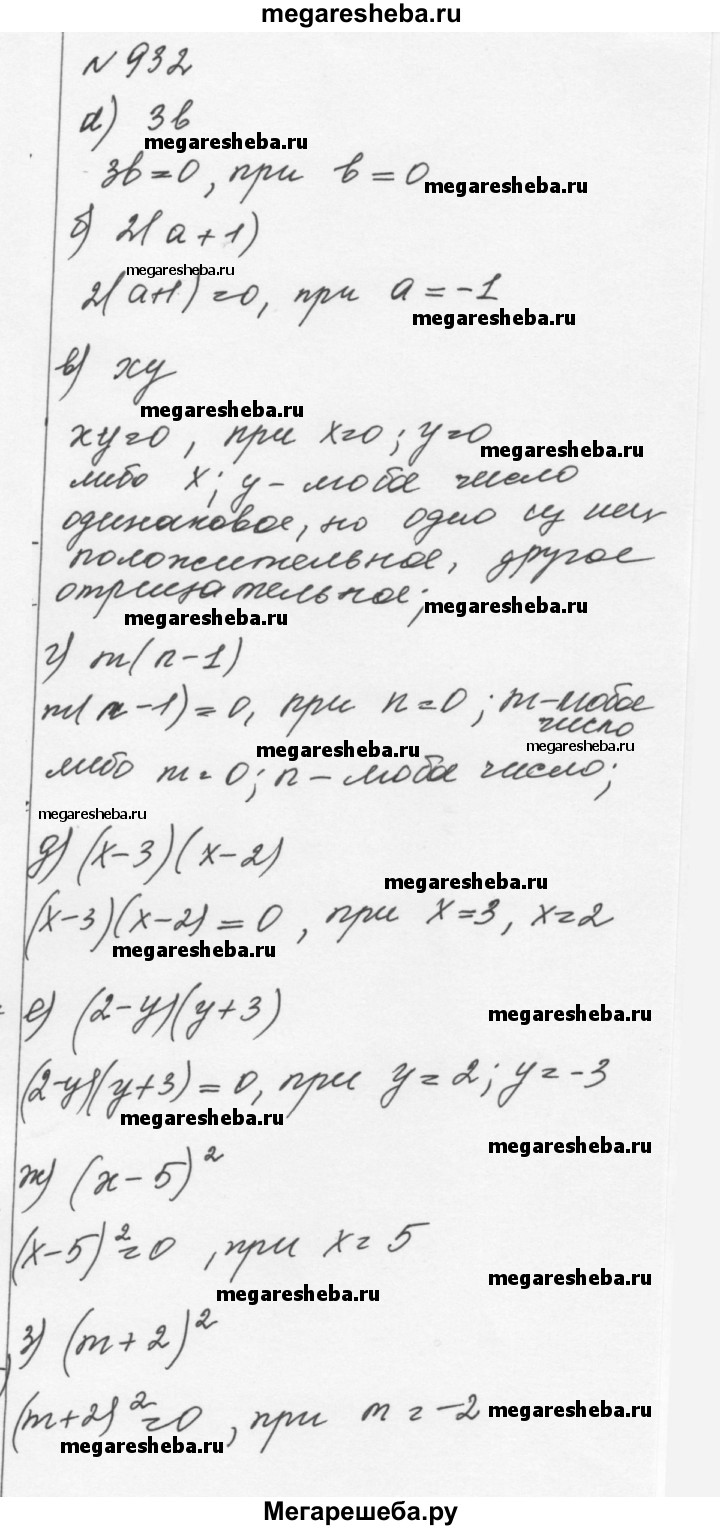 megaresheba.ru
№ 932
а) 3b
megaresheba.ru
3b = 0, при b = 0
megaresheba.ru
б) 2(a + 1)
megaresheba.ru
2(a+1) = 0, при a = -1
megaresheba.ru
в) xy
megaresheba.ru
xy = 0, при x = 0; y = 0
megaresheba.ru
либо x; y - любое число
одинаковое, но одно из них
положительное, другое
отрицательное;
megaresheba.ru
megaresheba.ru
г) m(n - 1)
m(n - 1) = 0, при n = 0; m - любое
число
megaresheba.ru
megaresheba.ru
либо m = 0; n - любое число;
megaresheba.ru
д) (x - 3)(x - 2)
megaresheba.ru
(x - 3)(x - 2) = 0, при x = 3, x = 2
megaresheba.ru
е) (2 - y)(y + 3)
megaresheba.ru
(2 - y)(y + 3) = 0, при y = 2; y = -3
megaresheba.ru
megaresheba.ru
ж) (x - 5)²
(x - 5)² = 0, при x = 5
megaresheba.ru
megaresheba.ru
з) (m + 2)²
(m + 2)² = 0, при m = -2
megaresheba.ru
megaresheba.ru
Мегарешеба.ру